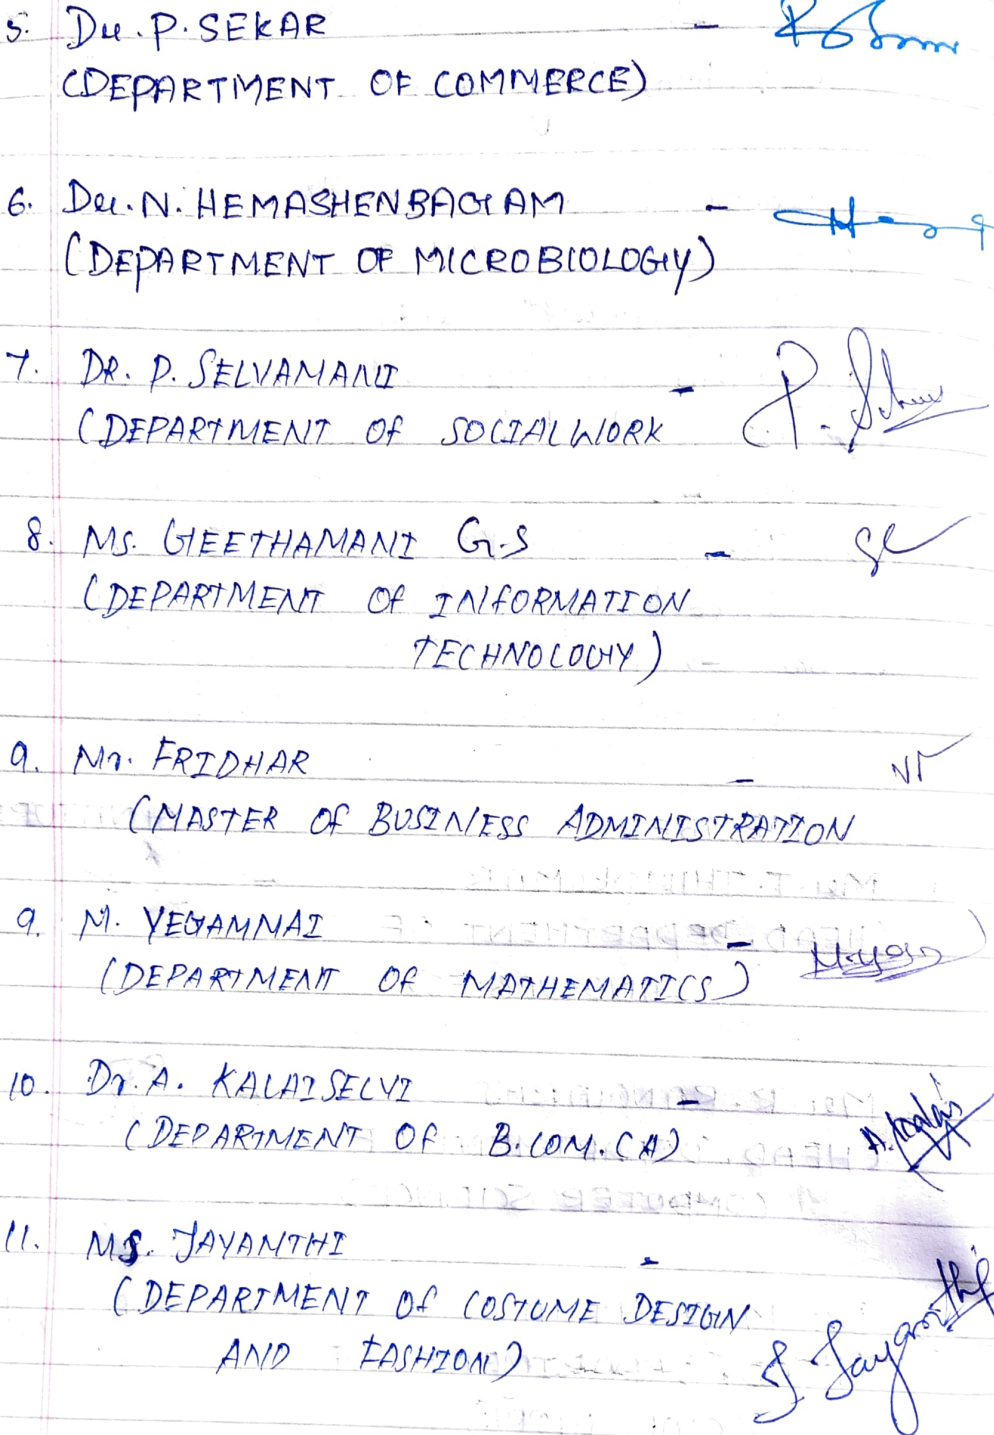 5. Dr. P. SEKAR -
(DEPARTMENT OF COMMERCE)
6. Dr. N. HEMASHENBAGAM -
(DEPARTMENT OF MICROBIOLOGY)
7. DR. P. SELVAMANI -
(DEPARTMENT OF SOCIAL WORK
8. MS. GEETHAMANI G.S -
(DEPARTMENT OF INFORMATION
TECHNOLOGY)
9. Mr. FRIDHAR -
(MASTER OF BUSINESS ADMINISTRATION
9. M. YEGAMMAI -
(DEPARTMENT OF MATHEMATICS)
10. Dr. A. KALAISELVI - A. Kalai
(DEPARTMENT OF B.COM.CA)
11. MS. JAYANTHI -
(DEPARTMENT OF COSTUME DESIGN
AND FASHION) J Jayanthi